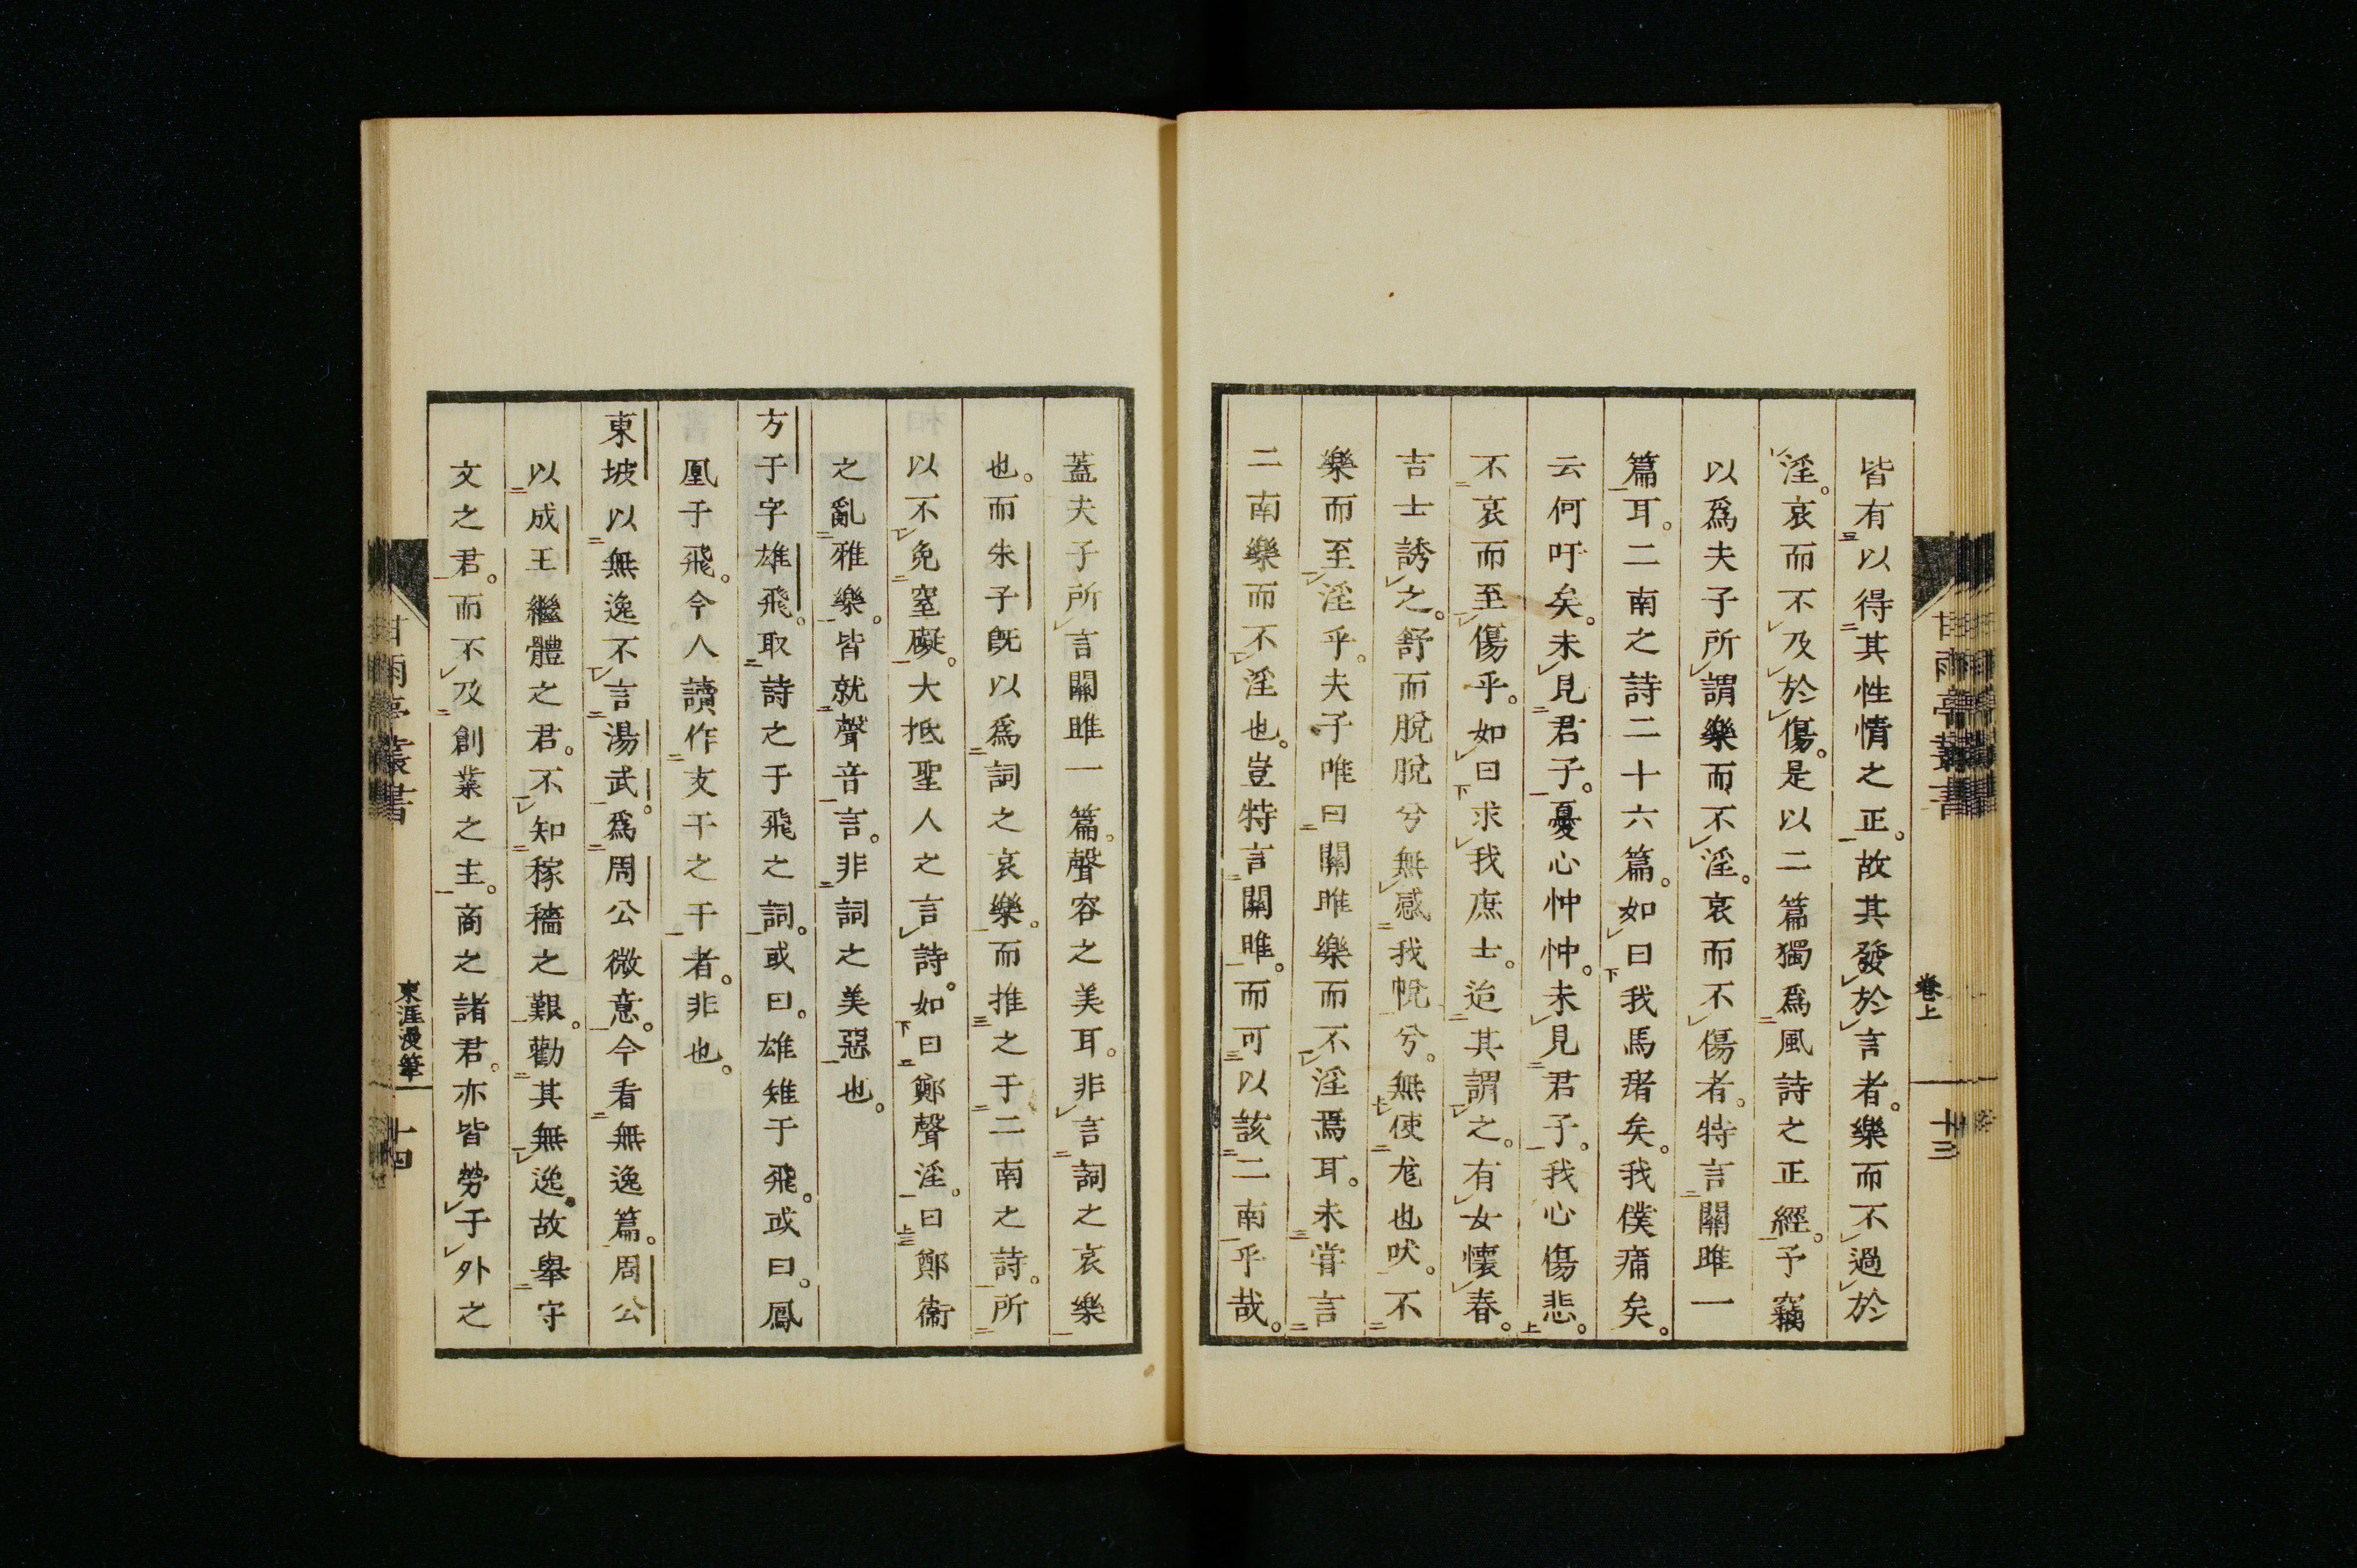 皆有以得其性情之正。故其發於言者。樂而不過於
淫。哀而不及於傷。是以二篇獨爲風詩之正經。予竊
以爲夫子所謂樂而不淫。哀而不傷者。特言關雎一
篇耳。二南之詩二十六篇。如曰我馬瘏矣。我僕痡矣。
云何吁矣。未見君子。憂心忡忡。未見君子。我心傷悲。
不哀而至傷乎。如曰求我庶士。迨其謂之。有女懷春。
吉士誘之。舒而脫脫兮無感我帨兮。無使尨也吠。不
樂而至淫乎。夫子唯曰關雎樂而不淫焉耳。未嘗言
二南樂而不淫也。豈特言關雎。而可以該二南乎哉。
甘雨亭叢書
卷上
十三
蓋夫子所言關雎一篇。聲容之美耳。非言詞之哀樂
也。而朱子旣以爲詞之哀樂。而推之于二南之詩。所
以不免窒礙。大抵聖人之言詩。如曰鄭聲淫。曰鄭衞
之亂雅樂。皆就聲音言。非詞之美惡也。
方于字雄飛。取詩之于飛之詞。或曰。雄雉于飛。或曰。鳳
凰于飛。今人讀作支干之干者。非也。
東坡以無逸不言湯武。爲周公微意。今看無逸篇。周公
以成王繼體之君。不知稼穡之艱。勸其無逸。故擧守
文之君。而不及創業之主。商之諸君。亦皆勞于外之
甘雨亭叢書
東涯漫筆
十四